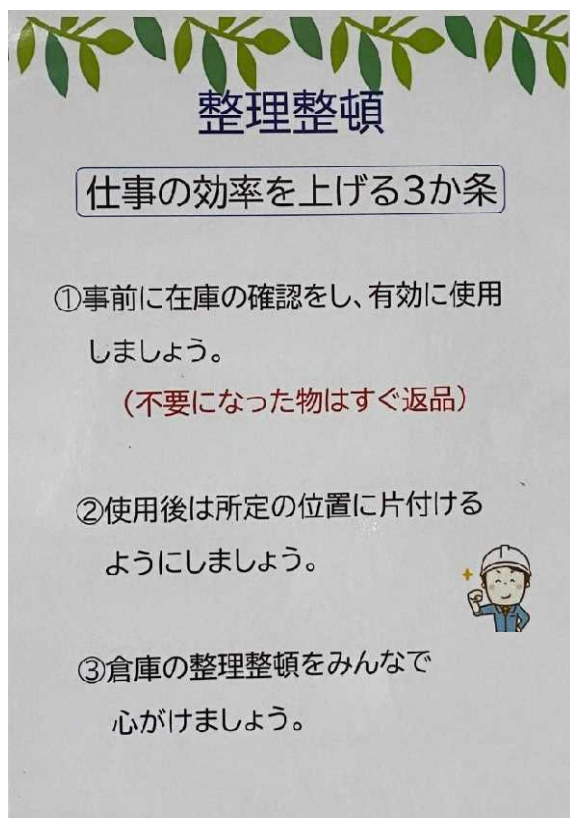 整理整頓
仕事の効率を上げる3か条
①事前に在庫の確認をし、有効に使用
しましょう。
(不要になった物はすぐ返品)
②使用後は所定の位置に片付ける
ようにしましょう。
③倉庫の整理整頓をみんなで
心がけましょう。